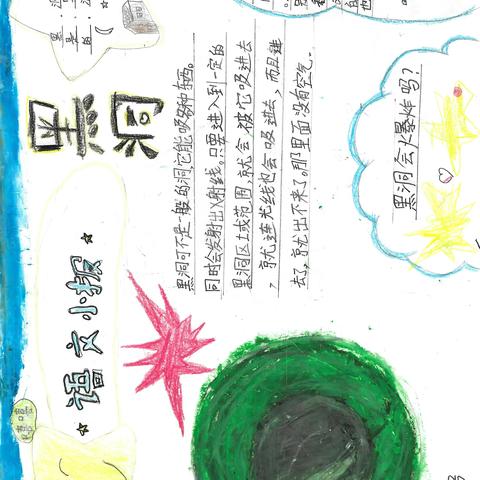 语文小报
黑洞
黑洞可不是一般的洞,它能吸各种东西。
同时会发射出X射线。只要进入到一定的
黑洞区域范围,就会被它吸进去
,就连光线也会吸进去,而且进
去,就出不来了。那里面没有空气。
黑洞会爆炸吗?